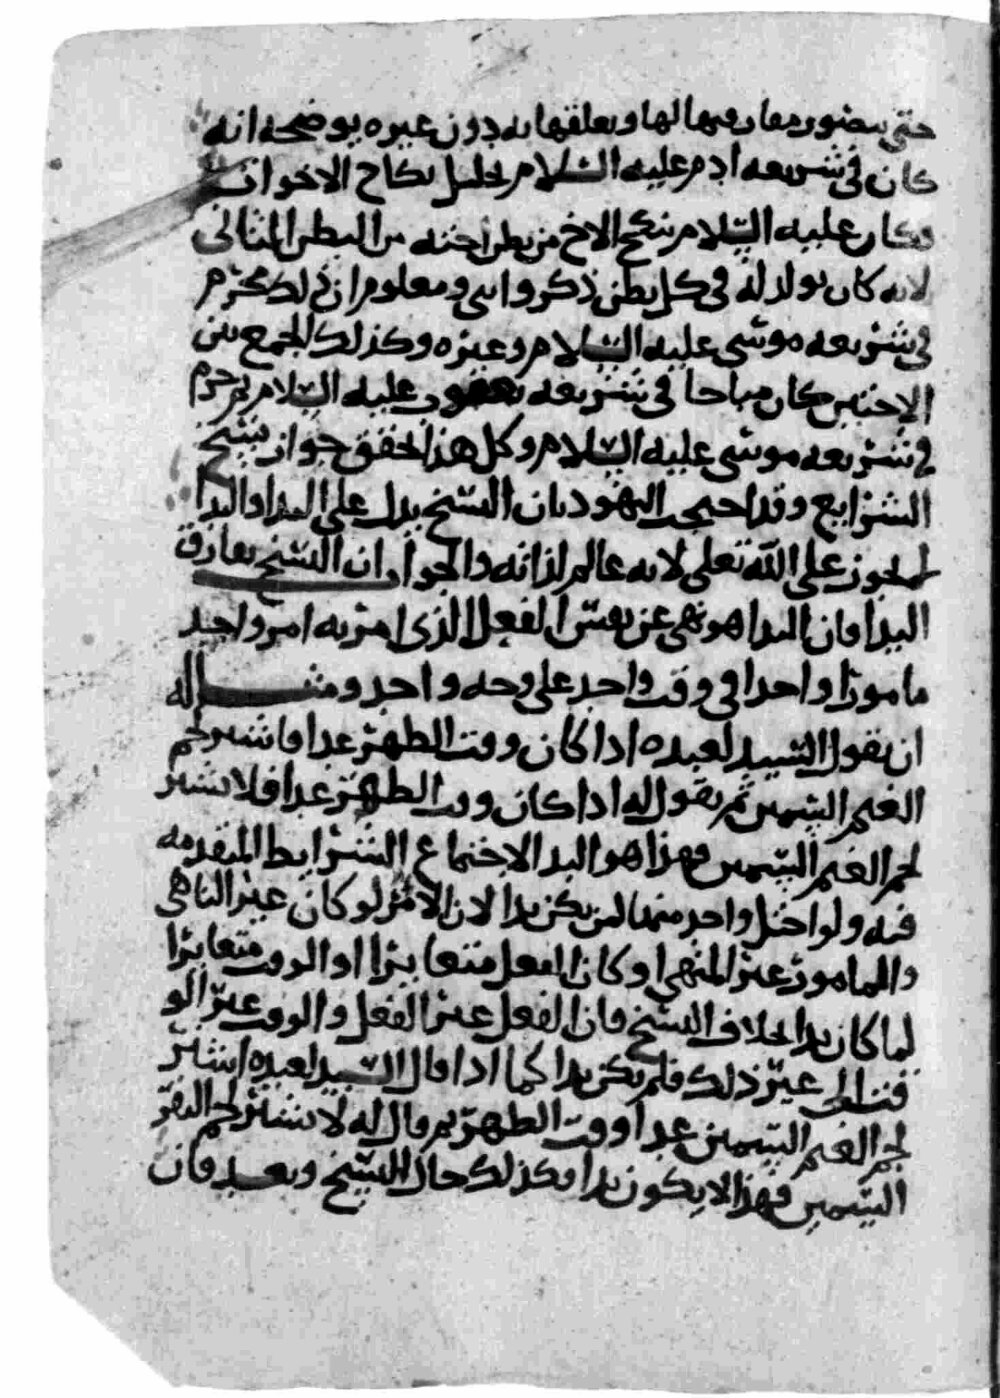 حتى يتصور مفارقتها لها وتعلقها به دون غيره يوضحه انه
كان في شريعه ادم عليه السلام تحليل نكاح الاخوات
وكان عليه السلام ينكح الاخ من بطن اخته من البطن الثاني
لانه كان يولد له في كل بطن ذكر وانثى ومعلوم ان ذلك محرم
في شريعه موسى عليه السلام وغيره وكذلك الجمع بين
الاختين كان مباحا في شريعه يعقوب عليه السلام ثم حرم
في شريعه موسى عليه السلام وكل هذا يحقق جواز نسخ
الشرايع وقد احتجت اليهود بان النسخ يدل على البدا والبدا
لا يجوز على الله تعلى لانه عالم لذاته والجواب ان النسخ يفارق
البدا فان البدا هو نهي عن نفس الفعل الذي امر به امر واحد
مامورا واحدا في وقت واحد على وجه واحد ومثاله
ان يقول السيد لعبده اذا كان وقت الظهر غدا فاشتر لحم
الغنم السمين ثم يقول له اذا كان وقت الظهر غدا فلا تشتر
لحم الغنم السمين فهذا هو البدا لاجتماع الشرايط المتقدمه
فيه ولو اختل واحد منها لم يكن بدا لان الامر لو كان غير الناهي
والمامور غير المنهي او كان الفعل متغايرا او الوقت متغايرا
لما كان بدا بخلاف النسخ فان الفعل غير الفعل والوقت غير الو
قت الى غير ذلك فلم يكن بدا كما اذا قال السيد لعبده اشتر
لحم الغنم السمين غدا وقت الظهر ثم قال له لا تشتر لحم البقر
السمين فهذا لا يكون بدا وكذلك حال النسخ وبعد فان